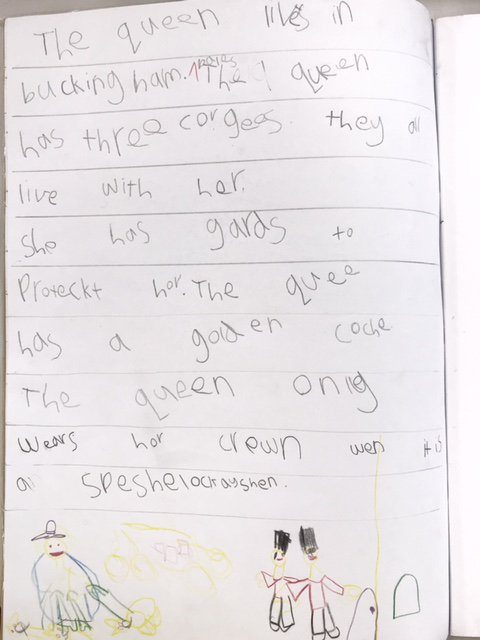 The queen lives in
bucking ham. The queen
has three corgees. they all
live with her.
she has gards to
Proteckt her. The quee
has a golden coche
The queen onlg
wears her crown wen it is
a speshelocrayshen.